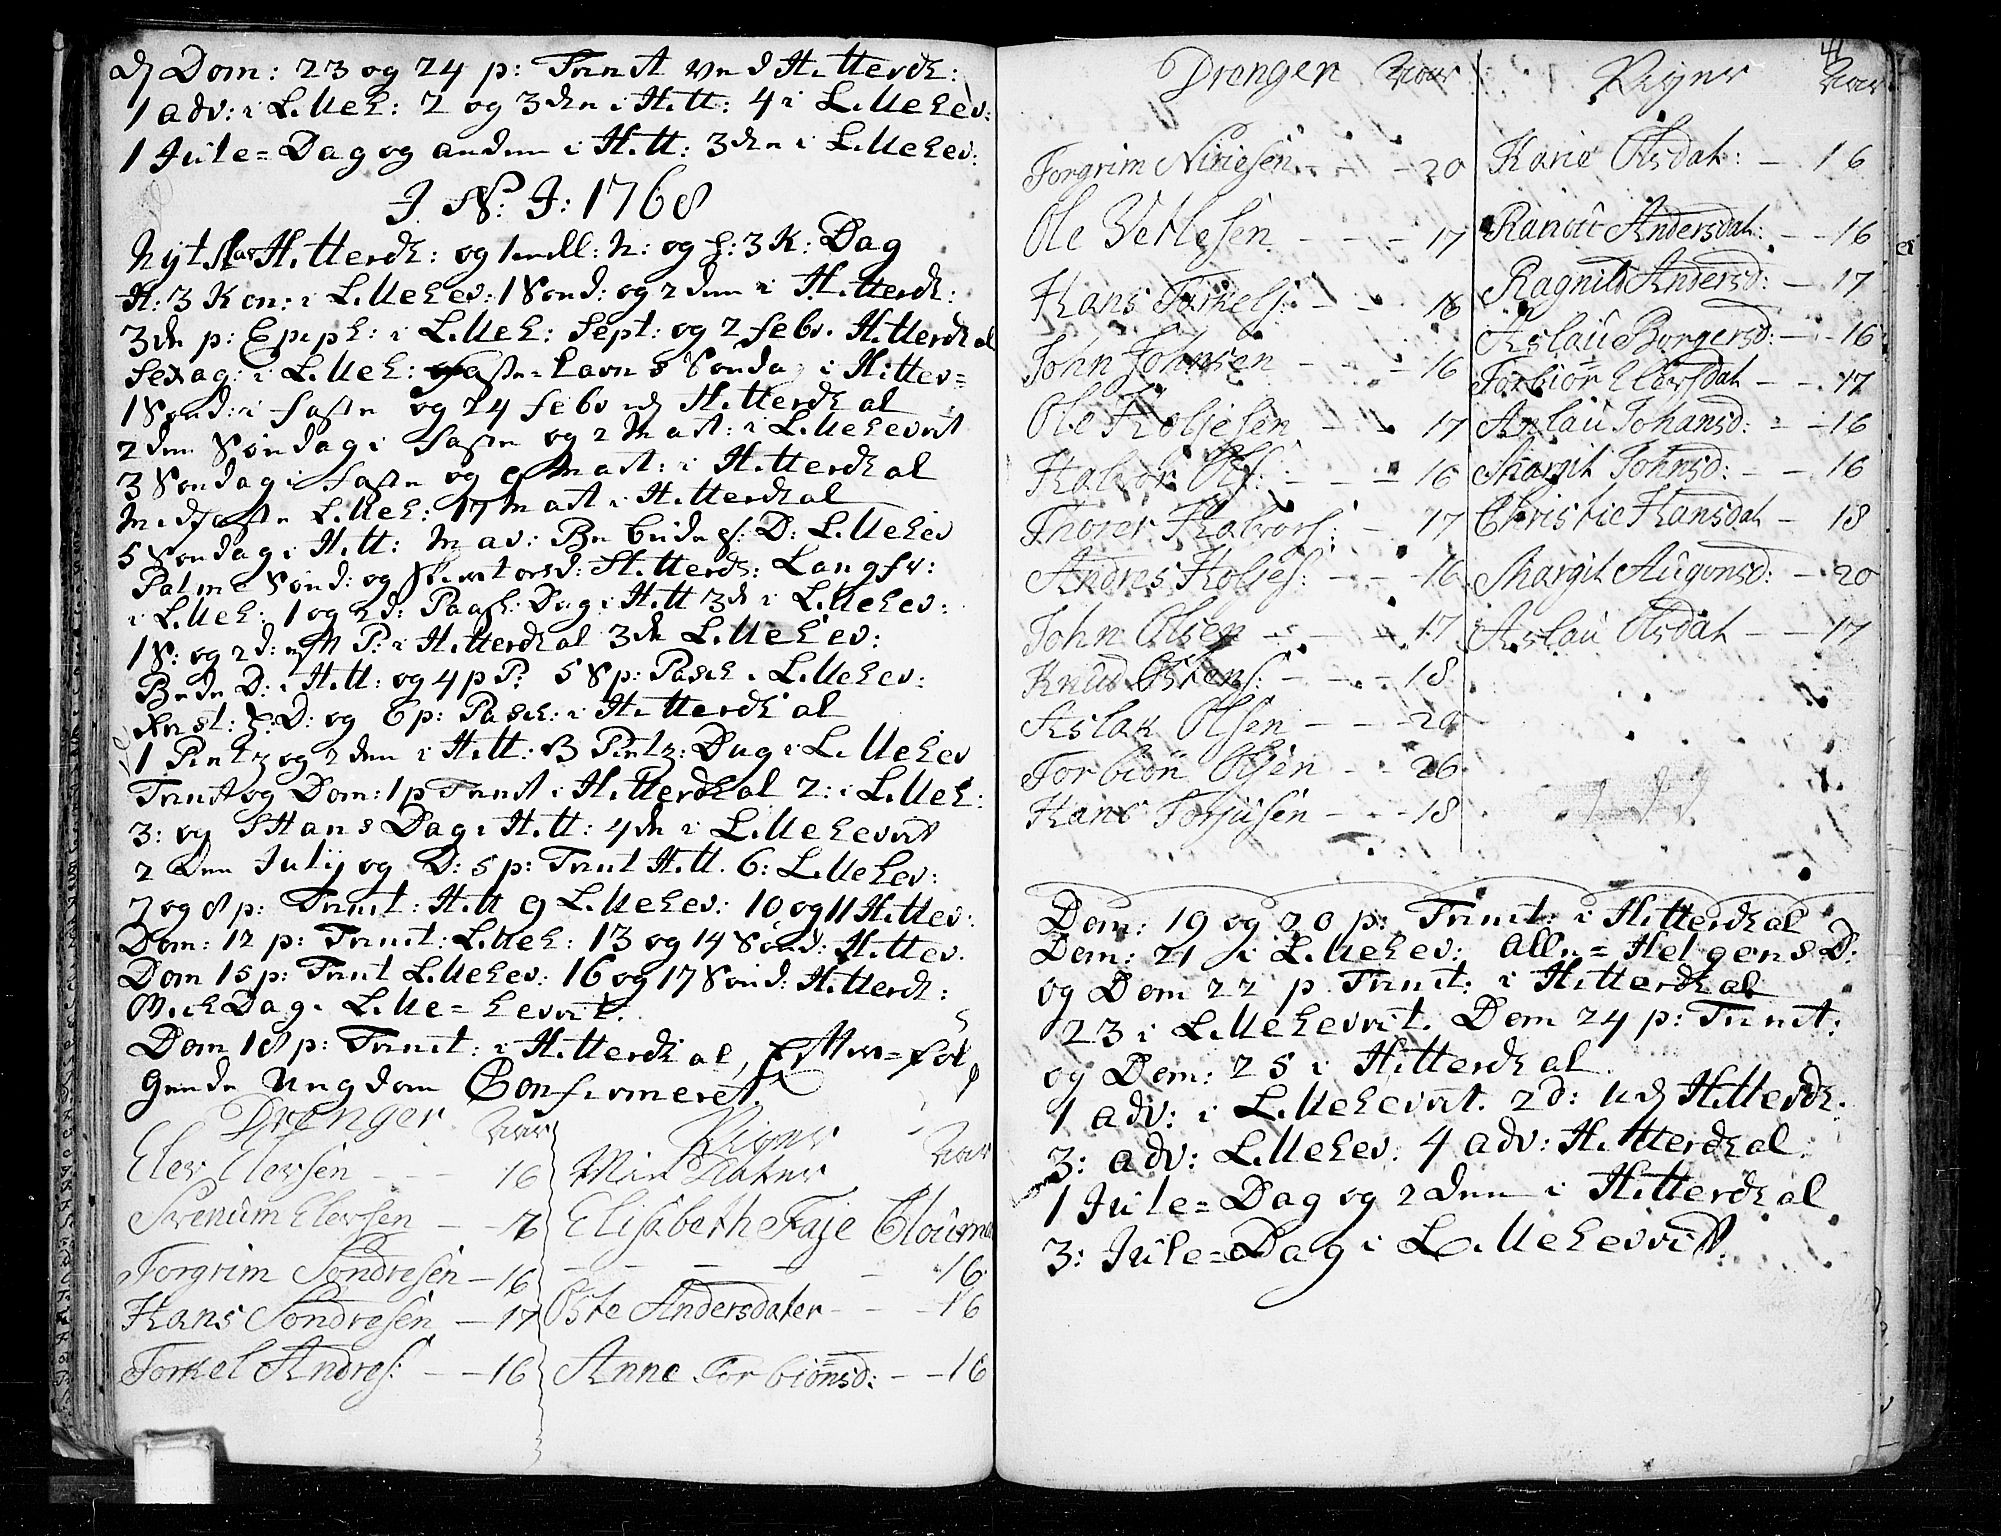 Dom: 23 og 24 p: Trinit ved Hitterd:
1 adv: i Lilleh: 2 og 3den i Hitt: 4 i Lillehev:
1 Jule=Dag og anden i Hitt: 3den i Lillehev:
J. N. J: 1768
Nyt Aar Hitterd: og N: og H: 3 K: Dag
H: 3 Kon: i Lillehev: 1 Sönd: og 2den i Hitterd:
3de p: Epiph: i Lilleh: Sept: og 2 febr. Hitterdal
Sexag: i Lilleh: fastelavns Sönda i Hitter=
1 Sönd: i fasten og 24 febr Hitterdal
2den Söndag i fasten og 2 Mart: i Lillehevrit
3 Söndag i fasten og 9 Mart: i Hitterdal
Midfasten Lilleh: 17 Mart i Hitterdal
5 Söndag i Hitt: Mar: Bebudes: D: Lillehev
Palme Sönd: og Skiertorsd: Hitterd: Langfr:
i Lilleh: 1 og 2d: Paask: Dag i Hitt 3de i Lillehev:
1 S: og 2d: eft P: i Hitterdal 3de Lillehev:
Bede D: i Hitt: og 4 p P. 5 S p: Pasch i Lillehev:
Krist: H: D: og 6 p: Pasch: i Hitterdal
1 Pintz og 2den i Hitt: 3 Pintz: Dag i Lillehev
Trinit og Dom: 1 p Trinit i Hitterdal 2: i Lilleh:
3: og S Hans Dag i Hitt: 4de i Lillehevrit
2 Den Julij og D: 5 p: Trinit Hitt. 6: Lillehev:
7 og 8 p: Trinit: Hitt 9 Lillehev: 10 og 11 Hitter:
Dom: 12 p: Trinit: Lilleh: 13 og 14 Sönd: Hitter.
Dom 15 p: Trinit Lillehev: 16 og 17 Sönd: Hitterd:
Mich Dag i Lille=hevrit.
Dom 18 p: Trinit: i Hitterdal, Efter=föl
gende Ungdom Confirmeret.
Drenger Aar Piger Aar
Elev Elevsen - - - 16 Mist Dater
Svenüm Elevsen - - 16 Elisabeth Faje Cloüm
Torgrim Söndresen - 16 - - - - - 16
Hans Söndresen - 17 Öste Andersdater - - - 16
Torkel Andres: - - 16 Anne Torbiönsd: - - 16
41
Drenger Aar Piger Aar
Torgrim Niriesen - - - 20 Karie Olsdat: - 16
Ole Vetlesen - - - 17 Ranou Andersdat: - - 16
Hans Torkels: - - 18 Ragnild Andersd: - 17
John Johnsen - - - 16 Aslaü Borgersd: - - 16
Ole Koljesen - - 17 Torbiör Elevsdat - - 17
Halvor Ols: - - - 16 Aslaü Johansd: - - 16
Thorer Halvors: - 17 Margit Johnsd: - - 16
Andres Koljes: - - - 16 Christie Hansdat - 18
John Olsen - - - 17 Margit Aügonsd: - 20
Knud Östens: - - - 18 Aslaü Olsdat - - 17
Aslak Olsen - - - 20
Torbiön Olsen - - 26
Hans Torjüsen - - - 18
Dom: 19 og 20 p: Trinit: i Hitterdal
Dom: 21 i Lillehev: Alle=Helgens D:
og Dom 22 p Trinit: i Hitterdal
23 i Lillehevrit. Dom 24 p: Trinit:
og Dom: 25 i Hitterdal.
1 adv: i Lillehevrit. 2d: Hitterd:
3: adv: Lillehev: 4 adv: Hitterdal.
1 Jule=Dag og 2den i Hitterdal
3: Jule=Dag i Lillehevrit.